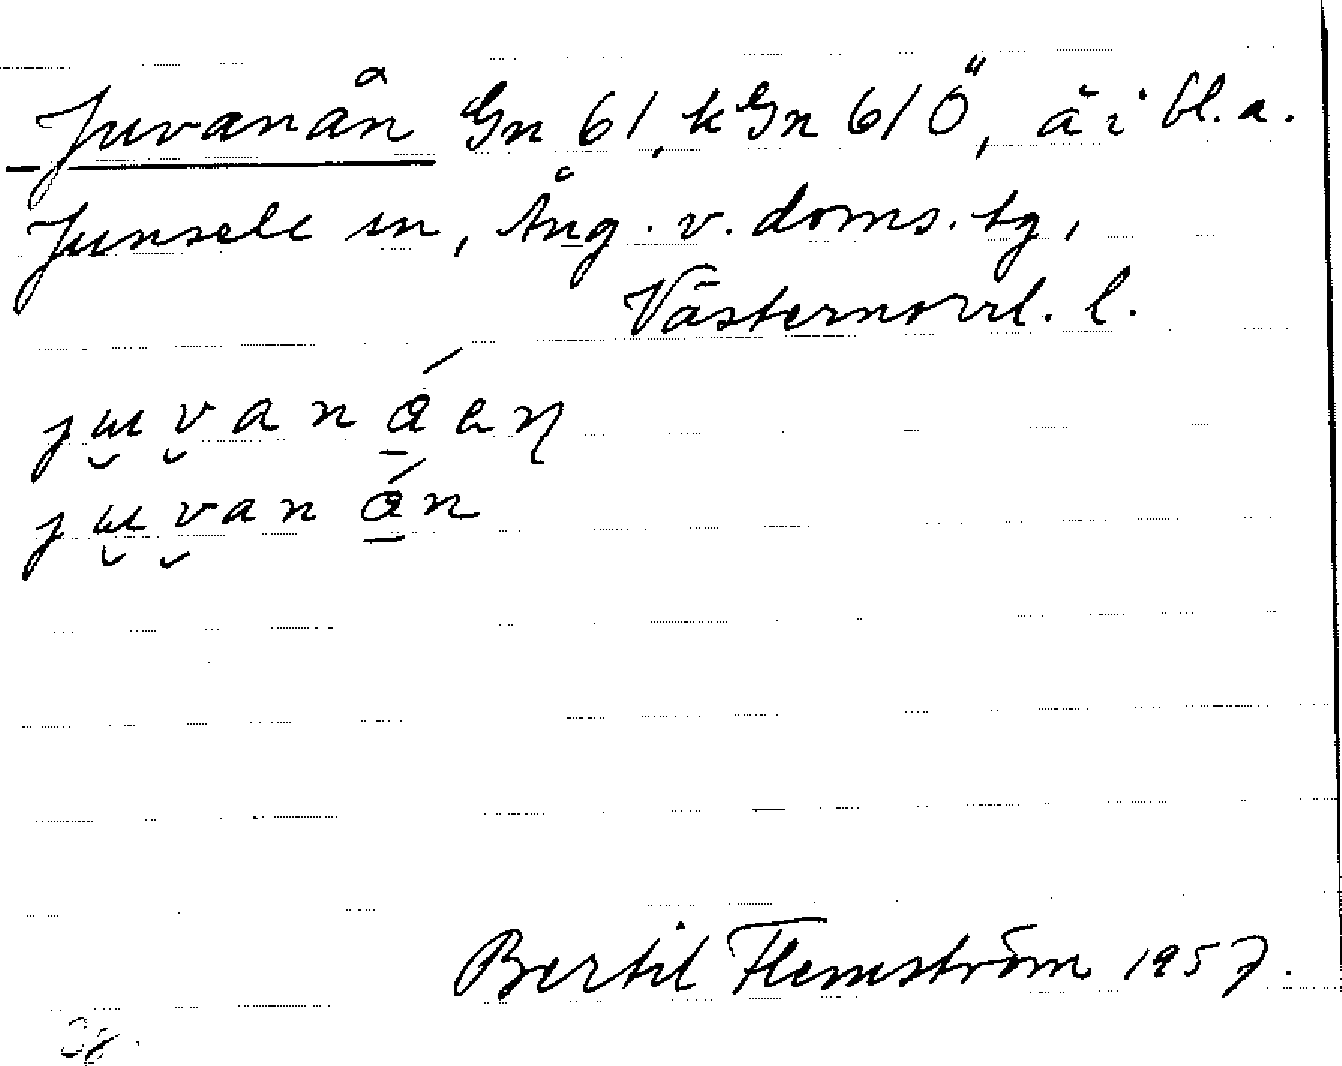 Juvanån Gn 61, kGn 61Ö, å i bl.a.
Junsele sn, Ång. v. doms. tg,
Västernorrl. l.
juvanáen
juvanán
Bertil Flemström 1957.